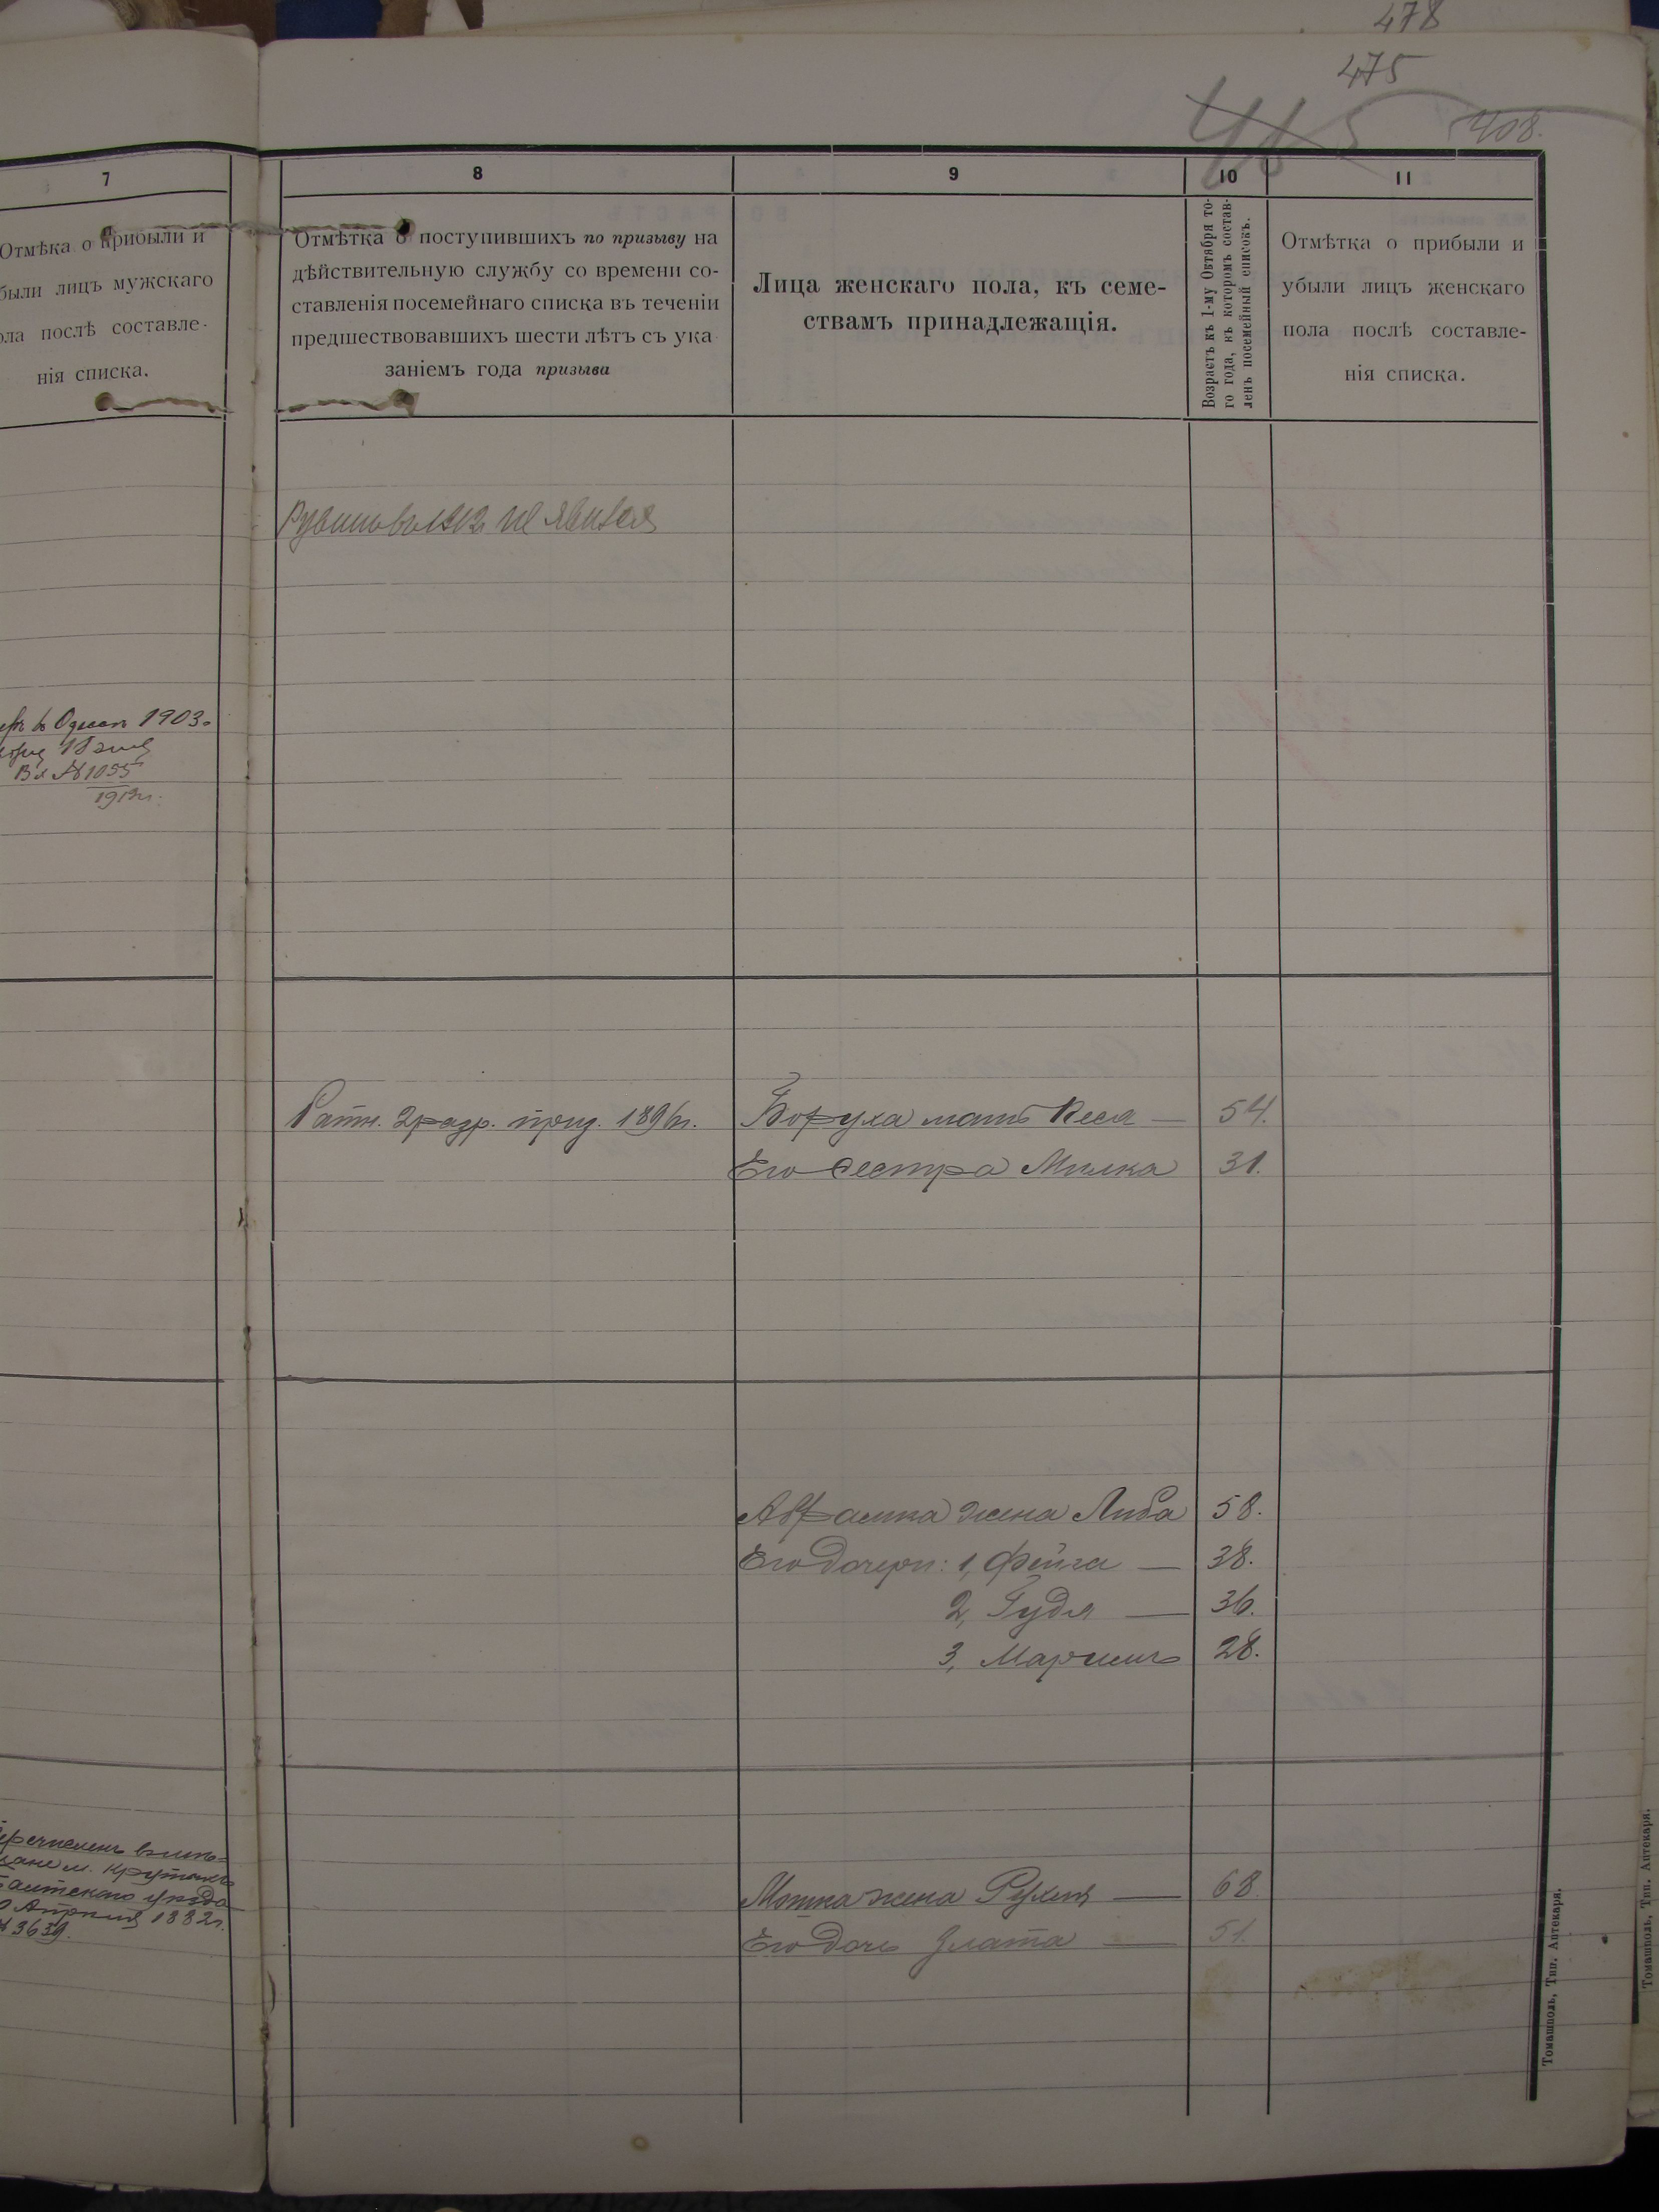 478
475
465
408.
7
8
9
10
11
Отмѣка о прибыли и
были лицъ мужскаго
ола послѣ составле-
нія списка.
Отмѣтка о поступившихъ по призыву на
дѣйствительную службу со времени со-
ставленія посемейнаго списка въ теченіи
предшествовавшихъ шести лѣтъ съ ука
заніемъ года призыва
Лица женскаго пола, къ семе-
ствамъ принадлежащія.
Возрастъ къ 1-му Октября то-
го года, къ которомъ состав-
ленъ посемейный списокъ.
Отмѣтка о прибыли и
убыли лицъ женскаго
пола послѣ составле-
нія списка.
1912 не явился
Одессѣ 1903
№ 1055
1912г.
Ратн. 2 разр. приз. 1896г.
Боруха мать Кеся — 54.
Его сестра Милка 31.
Абрамка жена Либа 58.
Его дочери: 1, Фейга — 38.
2, Гудя — 36.
3, 28.
мѣ-
щане м. Крутыхъ
уѣзда
Апрѣля 1882г.
№ 3639.
Мошка жена Рухля — 68
Его дочь Злата — 51.
Томашполь, Тип. Аптекаря.
Томашполь, Тип. Аптекаря.